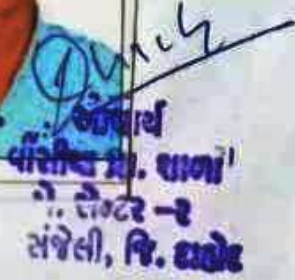 આચાર્ય
પ્રા. શાળા
પે. સેન્ટર -૨
સંજેલી, જિ. દાહોદ